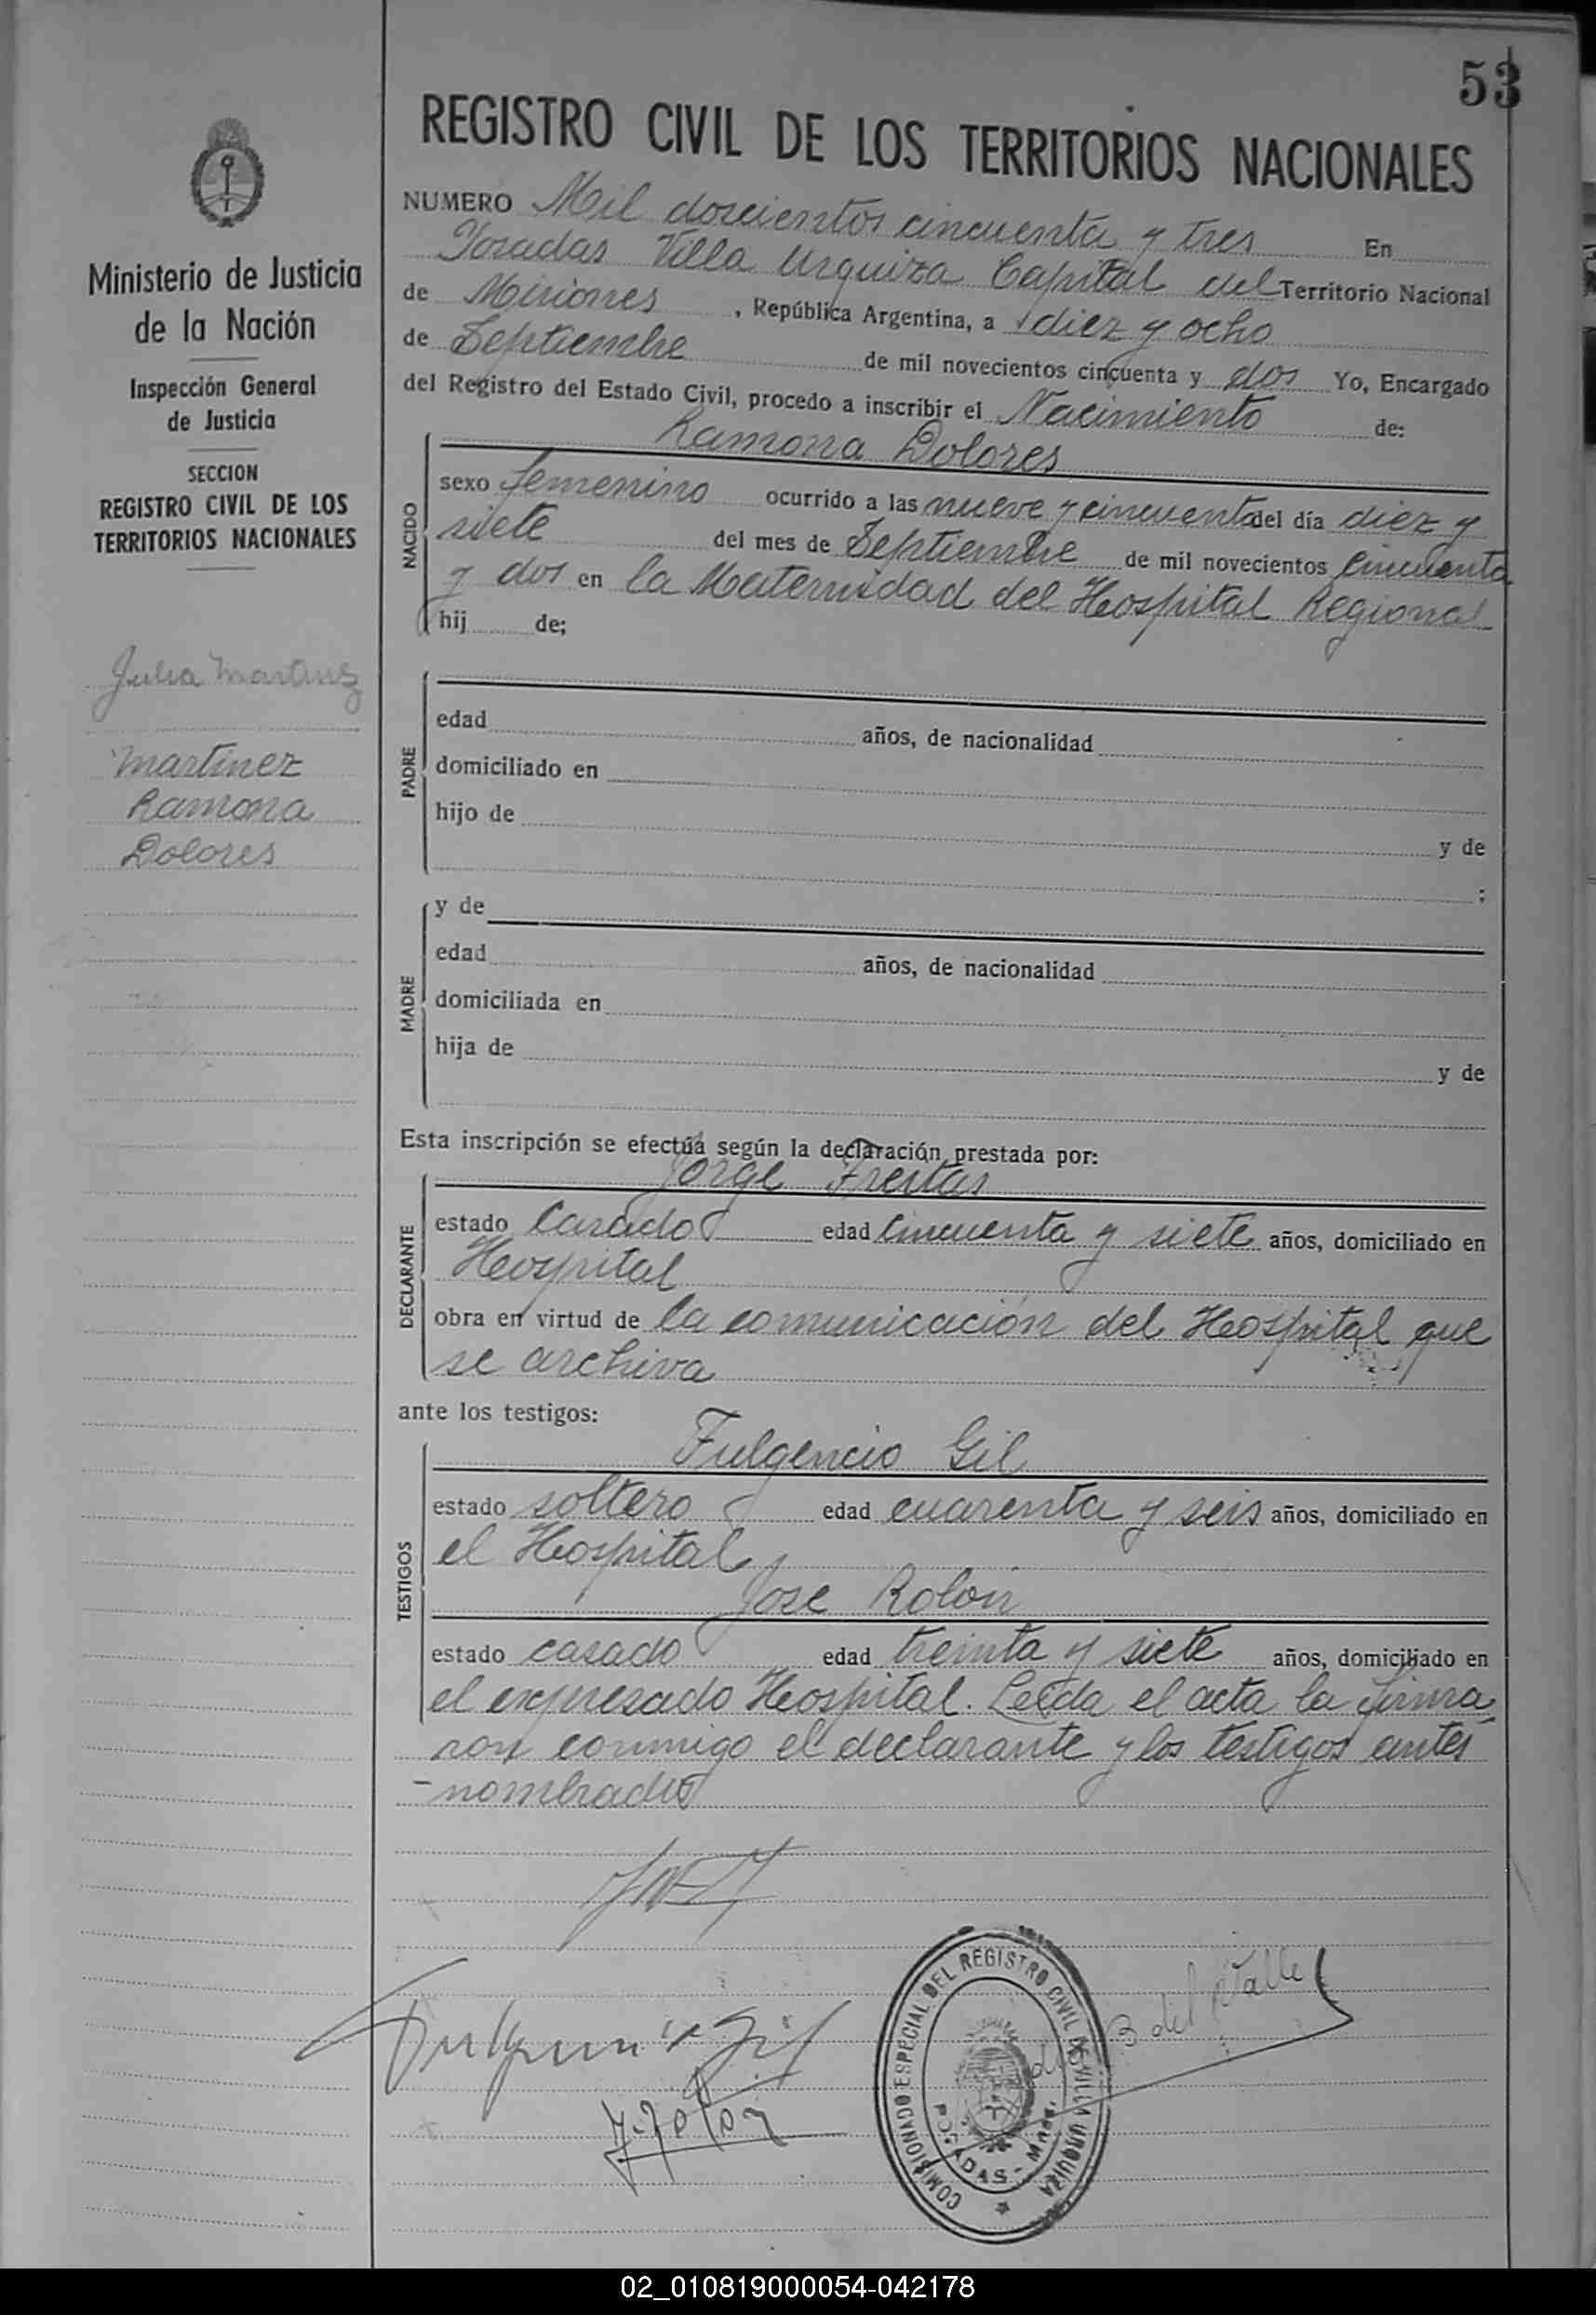 53
REGISTRO CIVIL DE LOS TERRITORIOS NACIONALES
Ministerio de Justicia
de la Nación
Inspección General
de Justicia
SECCION
REGISTRO CIVIL DE LOS
TERRITORIOS NACIONALES
Julia Martinez
Martinez
Ramona
Dolores
NUMERO Mil doscientos cincuenta y tres En
Posadas Villa Urquiza Capital del Territorio Nacional
de Misiones, República Argentina, a diez y ocho
de Septiembre de mil novecientos cincuenta y dos Yo, Encargado
del Registro del Estado Civil, procedo a inscribir el Nacimiento de:
NACIDO
Ramona Dolores
sexo femenino ocurrido a las nueve y cincuenta del día diez y
siete del mes de Septiembre de mil novecientos cincuenta
y dos en la Maternidad del Hospital Regional
hij de;
PADRE
edad años, de nacionalidad
domiciliado en
hijo de y de
;
MADRE
y de
edad años, de nacionalidad
domiciliada en
hija de y de
Esta inscripción se efectúa según la declaración prestada por:
DECLARANTE
Jorge Freitas
estado casado edad cincuenta y siete años, domiciliado en
Hospital
obra en virtud de la comunicación del Hospital que
se archiva
ante los testigos:
TESTIGOS
Fulgencio Gil
estado soltero edad cuarenta y seis años, domiciliado en
el Hospital
Jose Rolon
estado casado edad treinta y siete años, domiciliado en
el expresado Hospital. Leida el acta la firma
ron conmigo el declarante y los testigos antes
-nombrados
Fulgencio Gil
J. Rolon
B del Valle
COMISIONADO ESPECIAL DEL REGISTRO CIVIL DE VILLA URQUIZA
POSADAS - Mnes.
02_010819000054-042178